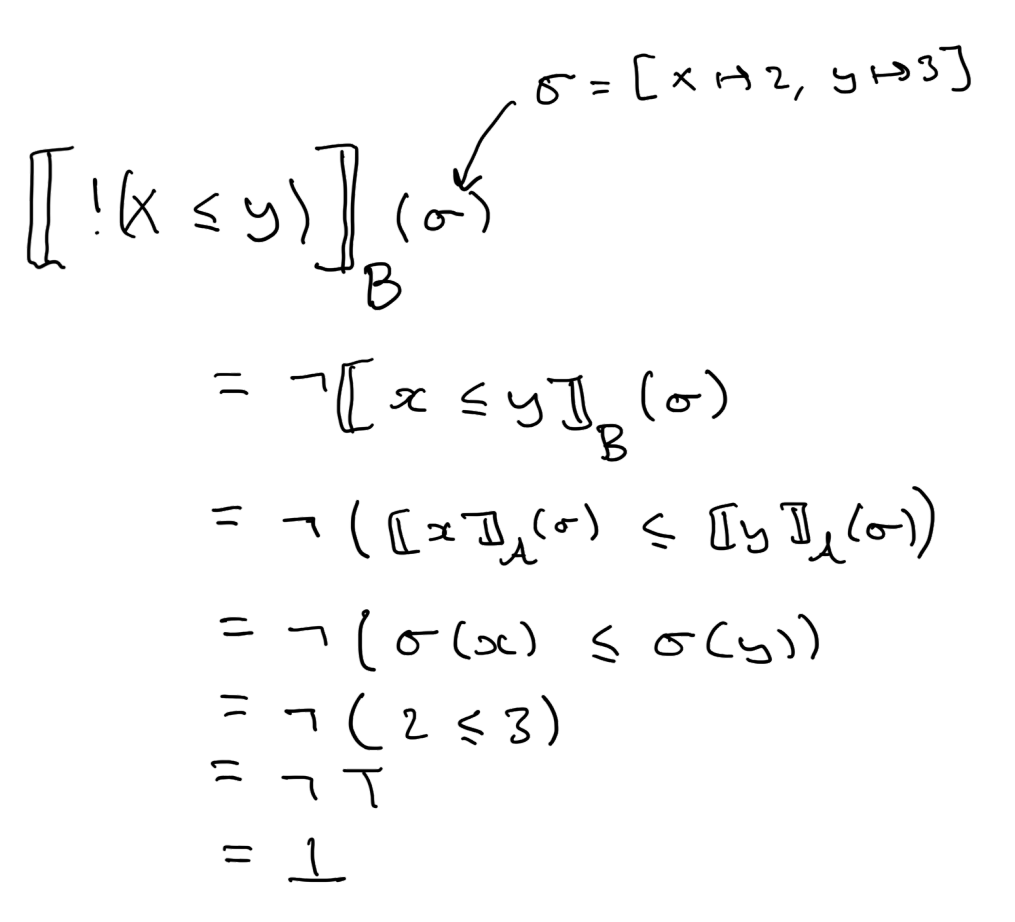 σ = [x ↦ 2, y ↦ 3]
⟦!(x ≤ y)⟧_B (σ)
= ¬⟦x ≤ y⟧_B (σ)
= ¬(⟦x⟧_A(σ) ≤ ⟦y⟧_A(σ))
= ¬(σ(x) ≤ σ(y))
= ¬(2 ≤ 3)
= ¬⊤
= ⊥